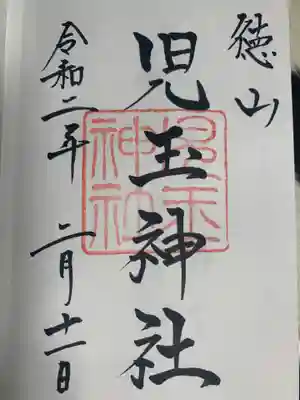 徳山
児玉神社
児玉神社
令和二年 二月十一日